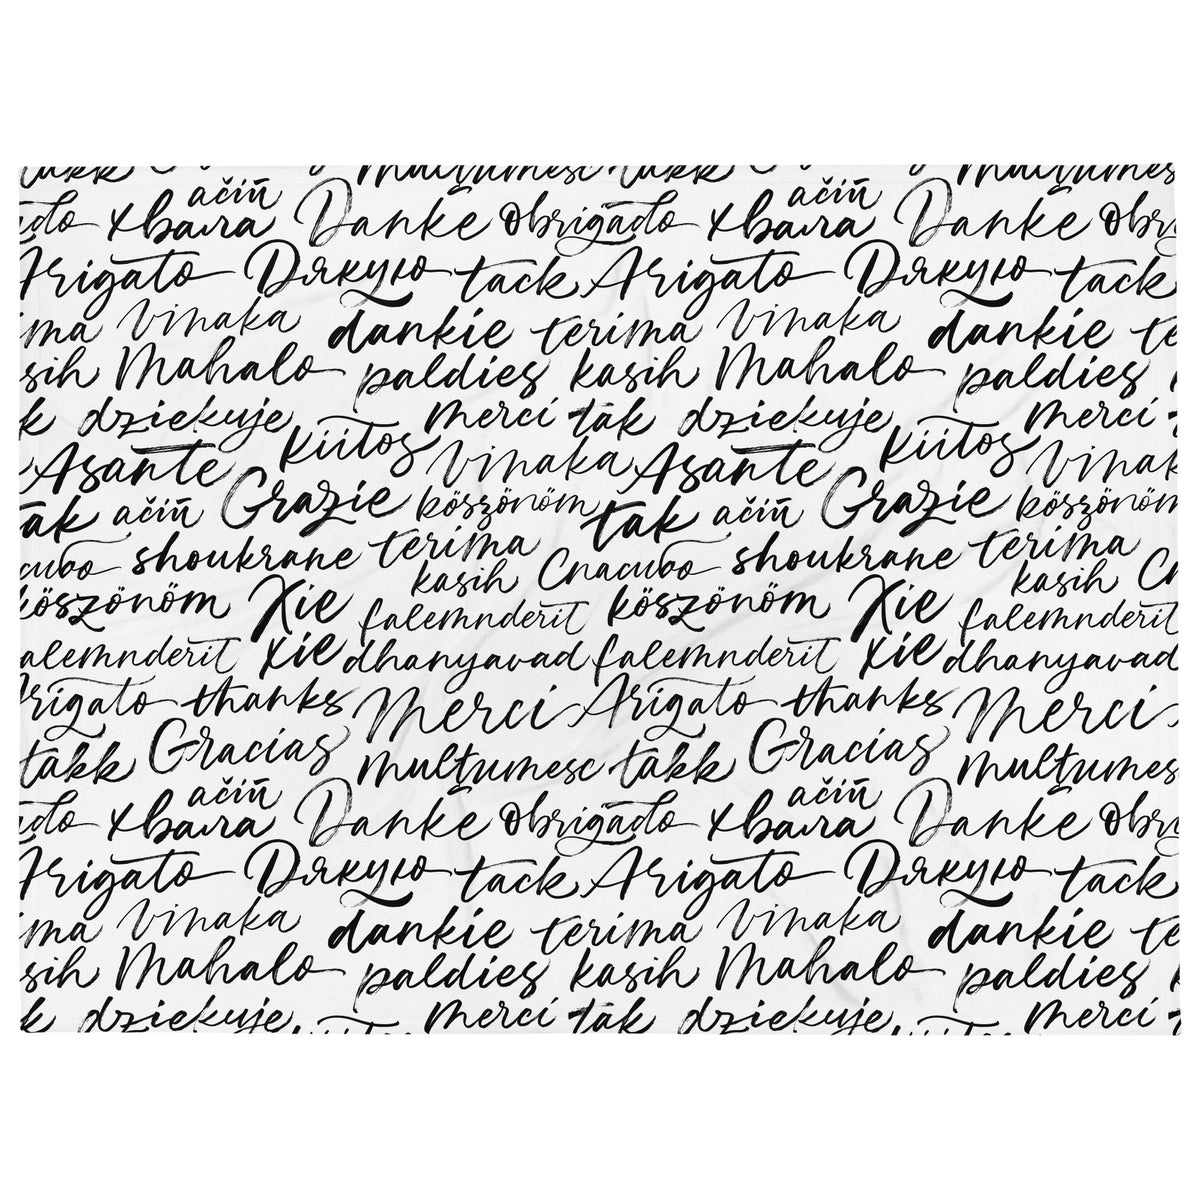 takk Gracias multumesc takk Gracias multumes
ačiū ačiū
ado хвала Danke obrigado хвала Danke obri
Arigato Дякую tack Arigato Дякую tack
ima vinaka dankie terima vinaka dankie te
sih Mahalo paldies kasih Mahalo paldies
k dziekuje merci tak dziekuje merci
Asante kiitos vinaka Asante kiitos vinak
tak ačiū Grazie köszönöm tak ačiū Grazie köszönöm
сибо shoukrane terima Спасибо shoukrane terima Сп
kasih kasih
köszönöm Xie falemnderit köszönöm Xie falemnderit
alemnderit xie dhanyavad falemnderit xie dhanyavad
Arigato thanks Merci Arigato thanks Merci
takk Gracias multumesc takk Gracias multumes
ačiū ačiū
ado хвала Danke obrigado хвала Danke obri
Arigato Дякую tack Arigato Дякую tack
ima vinaka dankie terima vinaka dankie te
sih Mahalo paldies kasih Mahalo paldies
k dziekuje kiitos merci tak dziekuje kiitos merci